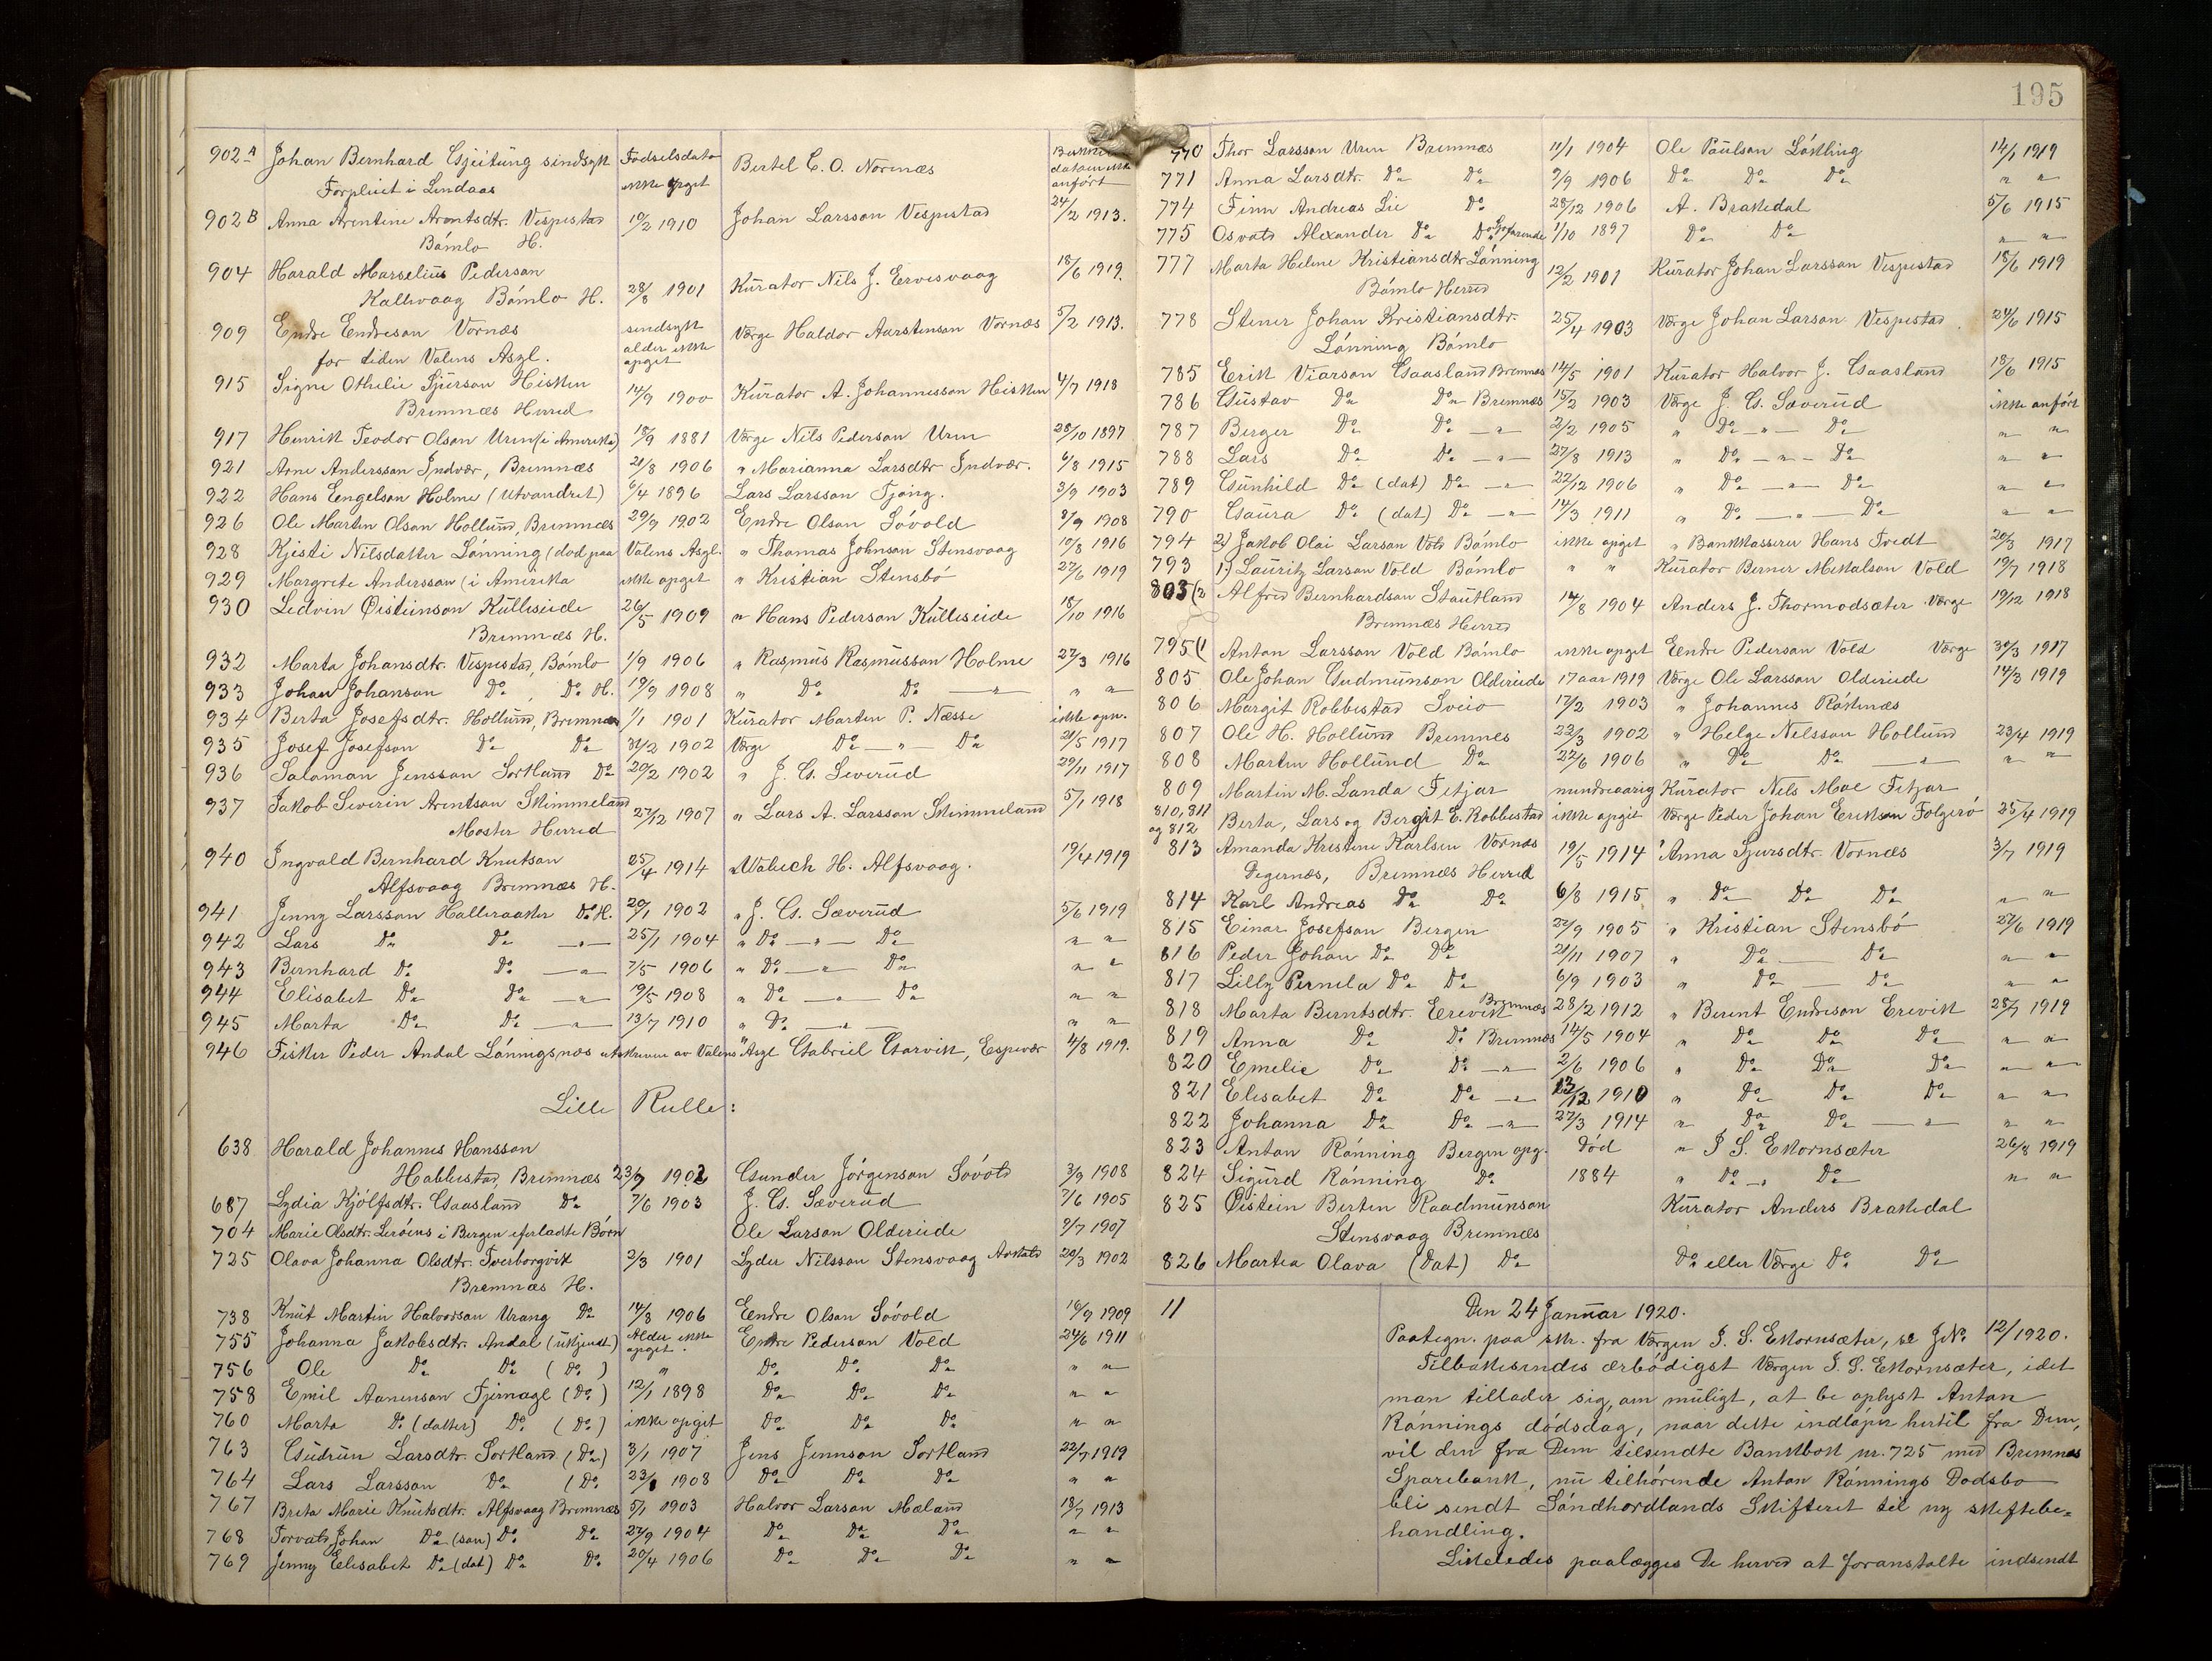 902 A Johan Bernhard Gjeitung sindsyk Fødselsdato Bertel E. O. Nornæs
Forpleiet i Lindaas ikke opget anført
902 B Anna Arentine Arentsdtr. Vespestad 10/2 1910 Johan Larsson Vespestad 24/2 1913.
Bömlo H.
904 Harald Marselius Pederson
Kallevaag Bömlo H. 28/8 1901 Kurator Nils J. Ervesvaag 18/6 1919.
909 Endre Endreson Vornæs sindsyk Værge Haldor Aarstenson Vornæs 5/2 1913.
for tiden Valens Asyl. alder ikke opget
915 Signe Othelie Sjurson Hisken 14/9 1900 Kurator A. Johannesson Hisken 4/7 1918
Bremnes Herred
917 Henrik Teodor Olson Urem (i Amerika) 18/9 1881 Værge Nils Pederson Urem 28/10 1897
921 Arne Andersson Indvær, Bremnæs 21/8 1906 " Marianna Larsdtr Indvær. 6/8 1915
922 Hans Engelson Holme (utvandret) 6/4 1896 Lars Larsson Tjong. 3/9 1903
926 Ole Martin Olson Hollund, Bremnæs 29/9 1902 Endre Olson Sövold 8/9 1908
928 Kjesti Nilsdatter Lönning (död paa Valens Asyl. " Thomas Johnson Stensvaag 10/8 1916
929 Margrete Andersson (i Amerika ikke opget " Kristian Stensbö 27/6 1919
930 Ledvin Øisteinson Kulleseide 26/5 1909 " Hans Pederson Kulleseide 18/10 1916
Bremnes H.
932 Marta Johansdtr. Vespestad, Bömlo 1/9 1906 " Rasmus Rasmusson Holme 27/3 1916
933 Johan Johanson Do Do H. 19/9 1908 " Do Do — " — " "
934 Berta Josefsdtr. Hollund, Bremnæs 1/1 1901 Kurator Martin P. Næsse ikke opn.
935 Josef Josefson Do Do 31/2 1902 Værge Do — " — Do 21/5 1917
936 Salaman Jensson Sortland Do 20/2 1902 " J. G. Severud 29/11 1917
937 Jakob Severin Arentson Skimmeland 27/12 1907 " Lars A. Larsson Skimmeland 5/1 1918
Moster Herred
940 Ingvald Bernhard Knutson 25/4 1914 " H. Alfsvaag. 19/4 1919
Alfsvaag Bremnes H.
941 Jenny Larsson Halleraaker Do H. 20/1 1902 " J. G. Sæverud 5/6 1919
942 Lars Do Do — " — 25/1 1904 " Do — " — Do " "
943 Bernhard Do Do — " 7/5 1906 " Do — " Do " "
944 Elisabet Do Do — " 19/5 1908 " Do — " — Do " "
945 Marta Do Do — " 13/7 1910 " Do — " — " "
946 Fisker Peder Andal Lönningsnæs utskreven av Valens Asyl Gabriel Garvik, Espevær 4/8 1919.
Lille Rulle:
638 Harald Johannes Hansson
Habbestad, Bremnes 23/9 1902 Gunder Jörgenson Sövold 3/9 1908
687 Lydia Kjölfsdtr. Gaasland Do 7/6 1903 J. G. Sæverud 7/6 1905
704 Marie Olsdtr. Leröens i Bergen efterladte Börn Ole Larson Oldereide 9/7 1907
725 Olava Johanna Olsdtr. Tverborgvik 2/3 1901 Lyder Nilsson Stensvaag 20/3 1902
Bremnæs H.
738 Knut Martin Halvorson Urang Do 14/8 1906 Endre Olson Sövold 16/9 1909
755 Johanna Jakobsdtr. Andal (ukjendt) Alder ikke opget. Endre Pederson Vold 24/6 1911
756 Ole Do Do (Do) " Do Do Do " "
758 Emil Aanenson Tjernagl (Do) 12/1 1898 Do Do Do " "
760 Marta Do (datter) Do (Do) ikke opget Do Do Do " "
763 Gudrun Larsdtr. Sortland (Do) 3/1 1907 Jens Jennson Sortland 22/7 1919
764 Lars Larsson Do (Do. 23/8 1908 Do Do Do " "
767 Brita Marie Knutsdtr. Alfsvaag Bremnæs 5/1 1903 Halvor Larson Mæland 18/7 1913
768 Torvald Johan Do (son) Do Do 27/9 1904 Do Do Do " "
769 Jenny Elisabet Do (dat) Do Do 20/4 1906 Do Do Do " "
195
770 Thor Larsson Urem Bremnæs 11/1 1904 Ole Paulson Lökling 14/1 1919
771 Anna Larsdtr. Do Do 9/9 1906 Do Do Do " "
774 Finn Andreas Lie Do 28/12 1906 A. Brakedal 5/6 1915
775 Osvald Alexander Do Do Sjøfarende 1/10 1897 Do Do " "
777 Marta Helene Kristiansdtr Lönning 12/2 1901 Kurator Johan Larsson Vespestad 18/6 1919
Bömlo Herred
778 Stener Johan Kristiansdtr. 25/4 1903 Værge Johan Larson Vespestad 24/6 1915
Lönning Bömlo
785 Erik Viarson Gaasland Bremnæs 14/5 1901 Kurator Halvor J. Gaasland 18/6 1915
786 Gustav Do Do Bremnæs 15/2 1903 Værge J. G. Sæverud ikke anfört
787 Berger Do Do — " 2/2 1905 " Do — " — Do " "
788 Lars Do Do — " 27/8 1913 " Do — " — Do " "
789 Gunhild Do (dat) Do — " 22/12 1906 " Do — " Do " "
790 Gaura Do (dat) Do — " 14/3 1911 " Do — " — Do " "
794 2) Jakob Olai Larson Vold Bömlo ikke opget " Bankkasserer Hans Tvedt 20/3 1917
793 1) Lauritz Larson Vold Bömlo " " Kurator Berner Mikalson Vold 19/7 1918
803 (2 Alfred Bernhardson Stautland 14/8 1904 Anders J. Thormodsæter Værge 19/12 1918
Bremnæs Herred
795 (1 Anton Larsson Vold Bömlo ikke opget Endre Pederson Vold Værge 30/3 1917
805 Ole Johan Gudmunson Oldereide 17 aar 1919 Værge Ole Larsson Oldereide 14/3 1919
806 Margit Robbestad Sveio 17/2 1903 " Johannes Röknæs
807 Ole H. Hollund Bremnes 22/3 1902 " Helge Nelsson Hollund 23/4 1919
808 Martin Hollund Do 22/6 1906 " Do Do — " — " "
809 Martin M. Landa Fitjar mindreaarig Kurator Nils Moe Fitjar
810, 811 og 812 Berta, Lars og Bergit E. Robbestad ikke opget Værge Peder Johan Erikson Folgerö 25/4 1919
813 Amanda Kristine Karlsen Vornæs 19/5 1914 " Anna Sjursdtr. Vornæs 3/7 1919
Degernæs, Bremnæs Herred
814 Karl Andreas Do Do 6/8 1915 " Do Do Do " "
815 Einar Josefson Bergen 22/9 1905 " Kristian Stensbö 27/6 1919
816 Peder Johan Do Do 21/11 1907 " Do — Do " "
817 Lilly Pernela Do Do 6/9 1903 " Do — Do " "
818 Marta Berntsdtr. Erevik Bremnæs 28/2 1912 " Berent Endreson Erevik 28/7 1919
819 Anna Do Do Bremnæs 14/5 1904 " Do Do Do " "
820 Emelie Do Do — " 2/6 1906 " Do Do Do " "
821 Elesabet Do Do — " 12/12 1910 " Do Do Do " "
822 Johanna Do Do — " 27/3 1914 " Do Do — " — " "
823 Anton Rönning Bergen opg. död " J S. Ekornsæter 26/8 1919
824 Sigurd Rönning Do 1884 " Do — " Do " "
825 Øistein Bertin Raadmunson Kurator Anders Brakedal
Stensvaag Bremnæs
826 Martea Olava (Dat) Do Do eller Værge Do Do
11 Den 24 Januar 1920.
Paategn. paa skr. fra Værgen J. S. Ekornsæter, se JNo. 12/1920.
Tilbakesendes ærbödigst Værgen J. S. Ekornsæter, idet
man tillader sig, om muligt, at be oplyst Anton
Rönnings dödsdag, naar dette indlöper hertil fra Dem,
vil den fra Dem tilsendte Bankbok nr. 725 med Bremnes
Sparebank, nu tilhörende Anton Rönnings Dødsbo
bli sendt Söndhordlands Skifteret til ny skiftebe=
handling.
Likeledes paalægges De herved at foranstalte indsendt